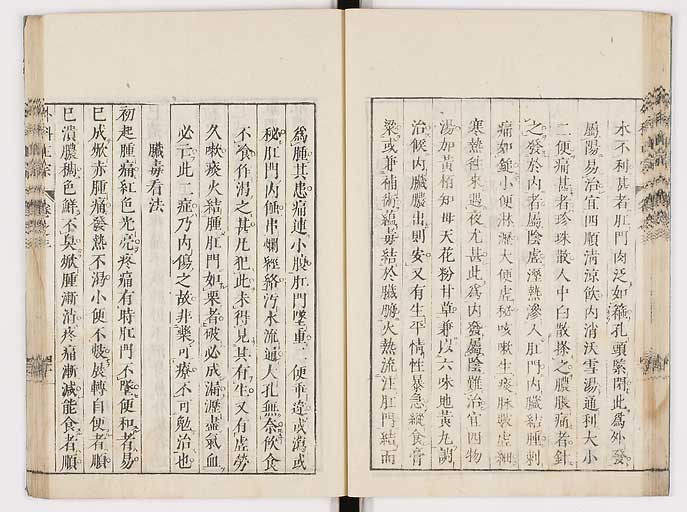 水不利甚者肛門肉泛如箍孔頭緊閉此爲外發
屬陽易治宜四順清凉飲內消沃雪湯通利大小
二便痛甚者珍珠散人中白散搽之膿脹痛者針
之發於內者屬陰虛濕熱滲入肛門內臟結腫刺
痛如錐小便淋瀝大便虛秘咳嗽生痰脉數虛細
寒熱往來遇夜尤甚此爲內發屬陰難治宜四物
湯加黃栢知母天花粉甘草兼以六味地黃丸調
治候內臟膿出則安又有生平情性暴急縱食膏
粱或兼補術蘊毒結於臟腑火熱流注肛門結而
爲腫其患痛連小腹肛門墜重二便乖違或瀉或
秘肛門內蝕串爛經絡污水流通大孔無奈飮食
不飡作渴之甚凡犯此未得見其有生又有虛勞
久嗽痰火結腫肛門如栗者破必成漏瀝盡氣血
必亡此二症乃內傷之故非藥可療不可勉治也
臟毒看法
初起腫痛紅色光亮疼痛有時肛門不墜便和者易
已成焮赤腫痛發熱不渴小便不數展轉自便者順
已潰膿稠色鮮不臭焮腫漸消疼痛漸減能食者順
外科正宗